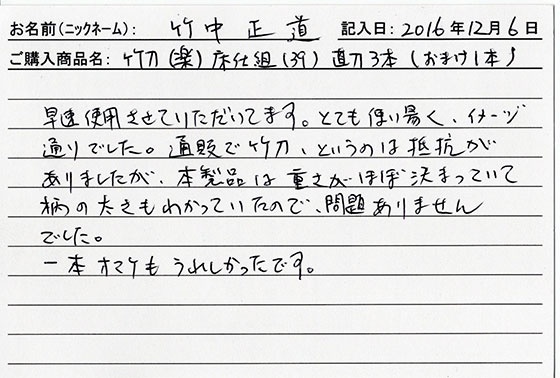 お名前(ニックネーム): 竹中正道 記入日: 2016年12月6日
ご購入商品名: 竹刀(楽)床仕組(39)直刀3本(おまけ1本)
早速使用させていただいてます。とても使い易く、イメージ
通りでした。通販で竹刀、というのは抵抗が
ありましたが、本製品は重さがほぼ決まっていて
柄の太さもわかっていたので、問題ありません
でした。
一本オマケもうれしかったです。